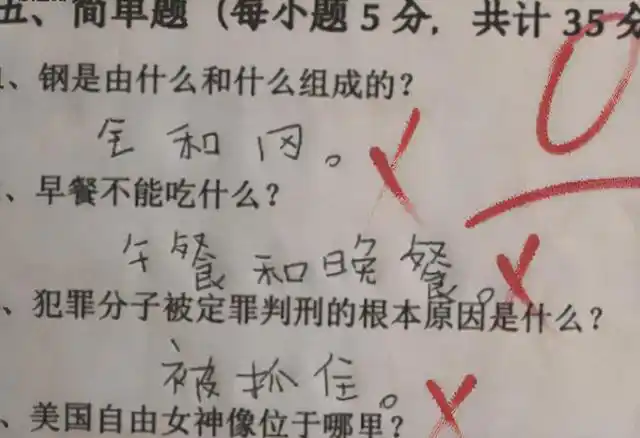 五、简单题（每小题5分，共计35分
1、钢是由什么和什么组成的？
钅和冈。
、早餐不能吃什么？
午餐和晚餐。
、犯罪分子被定罪判刑的根本原因是什么？
被抓住。
、美国自由女神像位于哪里？
0